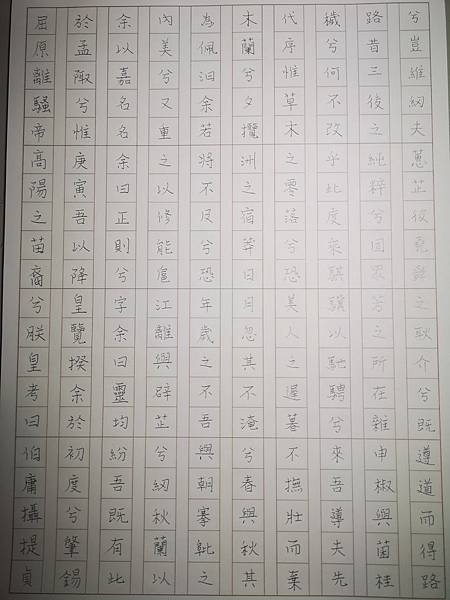 屈原離騷帝高陽之苗裔兮朕皇考曰伯庸攝提貞
於孟陬兮惟庚寅吾以降皇覽揆余於初度兮肇錫
余以嘉名名余曰正則兮字余曰靈均紛吾既有此
內美兮又重之以修能扈江離與辟芷兮紉秋蘭以
為佩汨余若將不及兮恐年歲之不吾與朝搴阰之
木蘭兮夕攬洲之宿莽日月忽其不淹兮春與秋其
代序惟草木之零落兮恐美人之遲暮不撫壯而棄
穢兮何不改乎此度乘騏驥以馳騁兮來吾導夫先
路昔三後之純粹兮固眾芳之所在雜申椒與菌桂
兮豈維紉夫蕙芷彼堯舜之耿介兮既遵道而得路